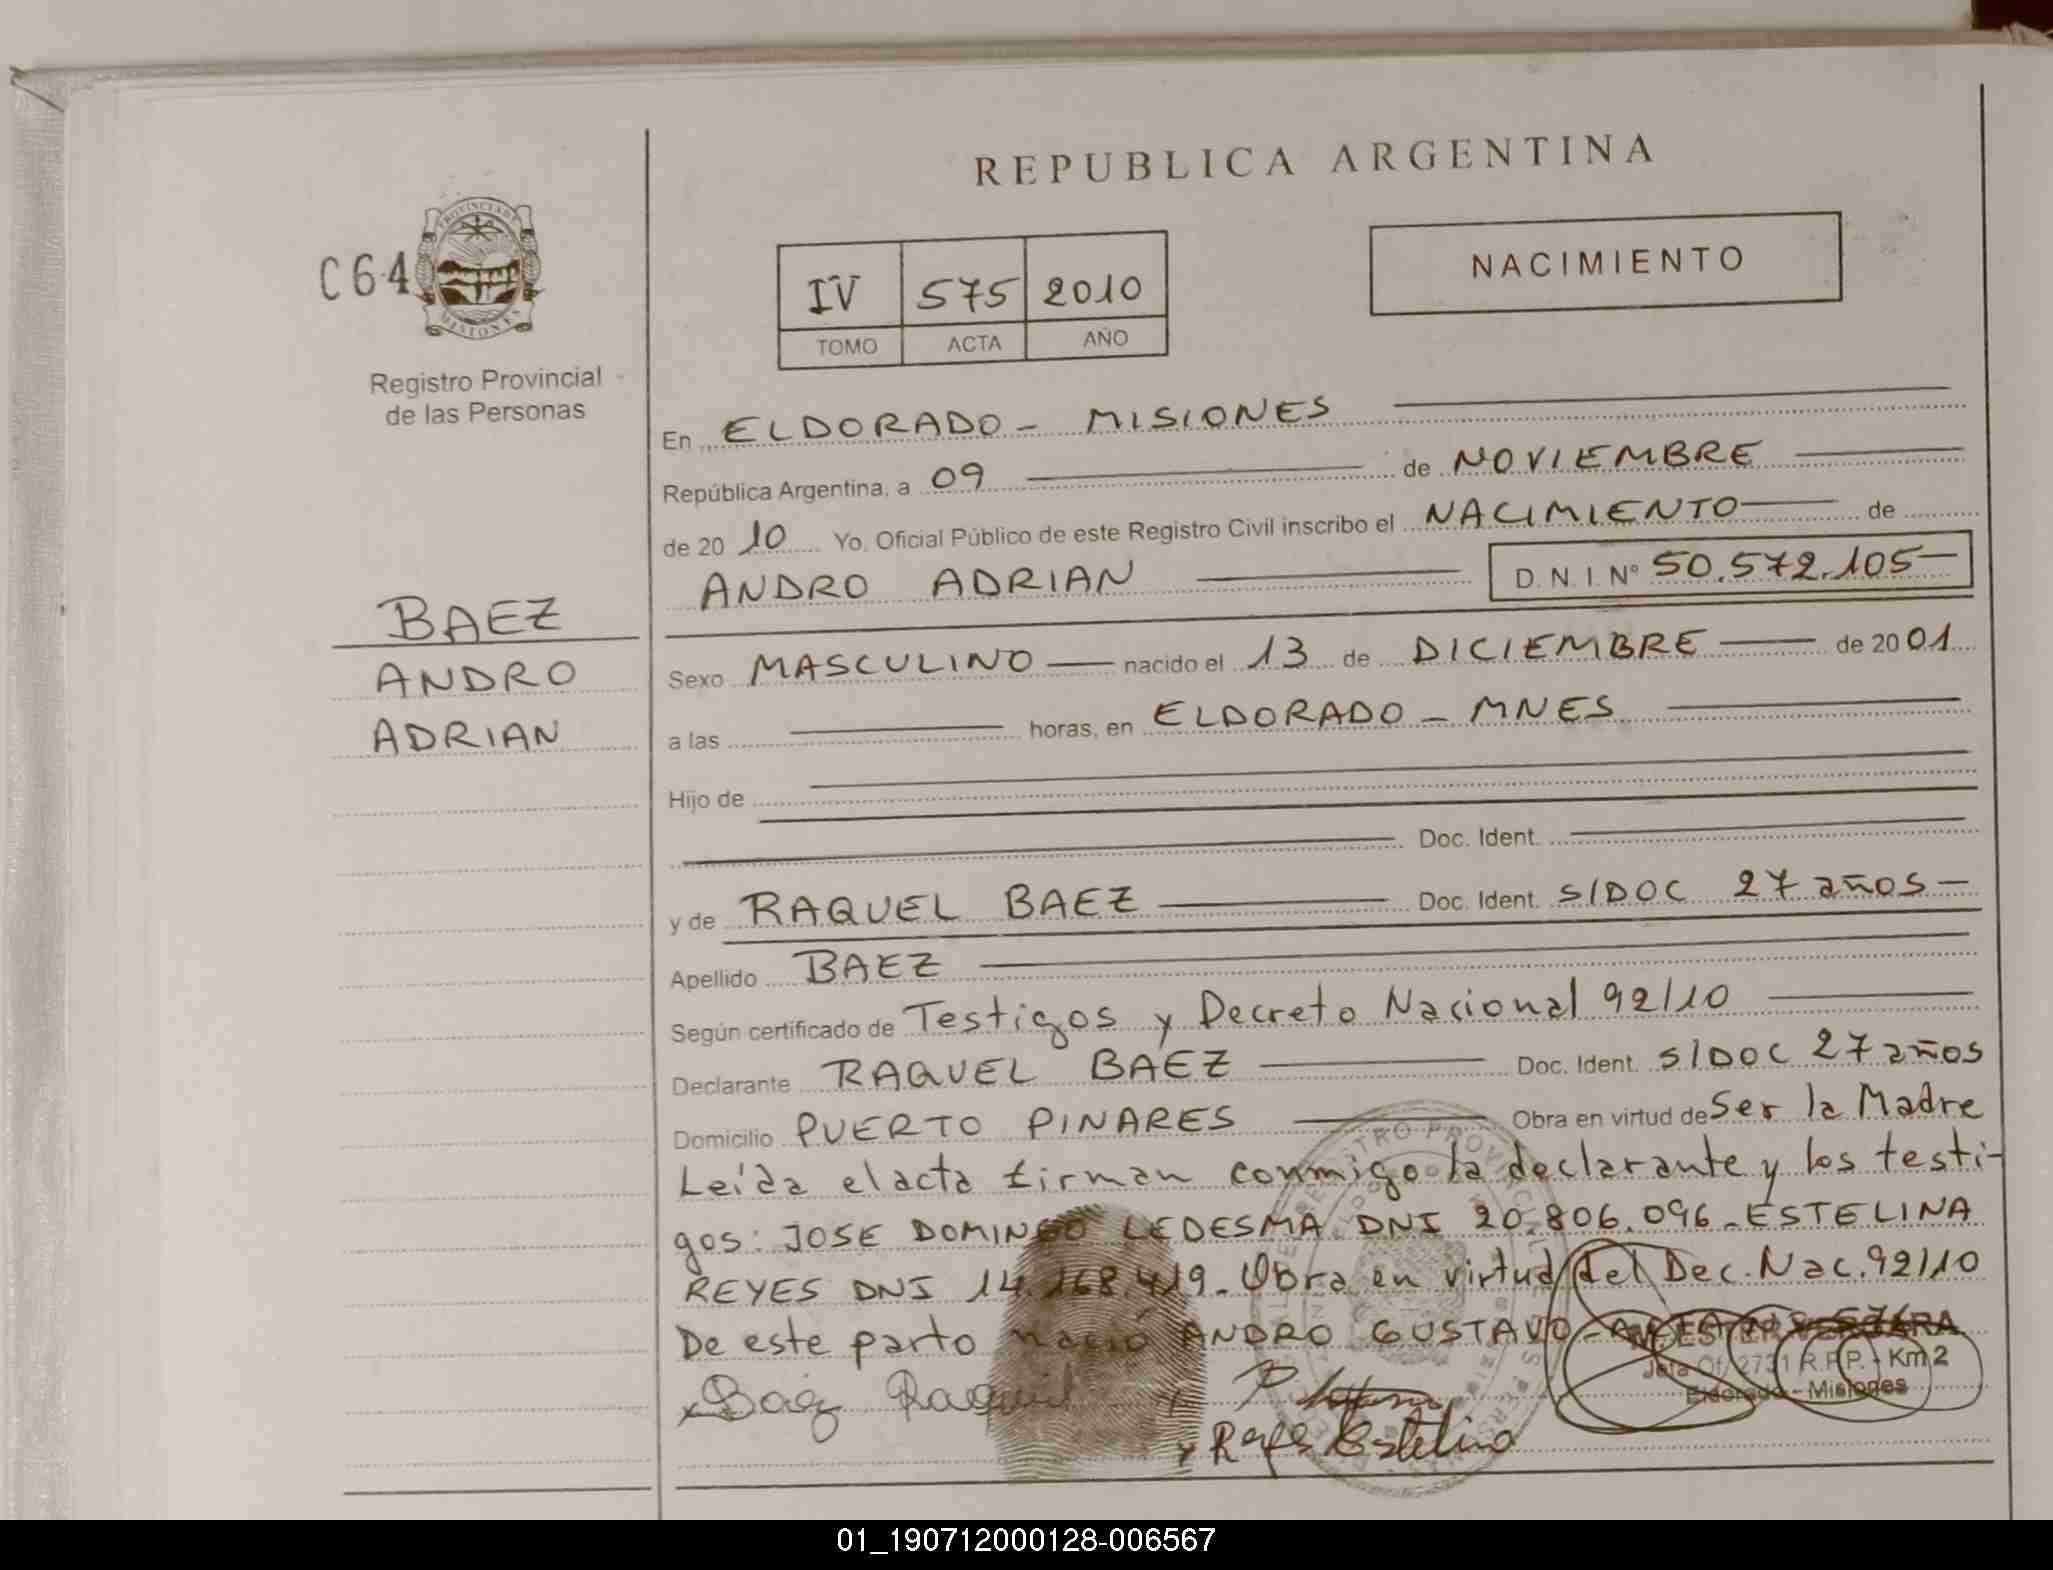 REPUBLICA ARGENTINA
C64
PROVINCIA DE
MISIONES
IV 575 2010
TOMO ACTA AÑO
NACIMIENTO
Registro Provincial
de las Personas
En ELDORADO - MISIONES
República Argentina, a 09 de NOVIEMBRE
de 2010 Yo. Oficial Público de este Registro Civil inscribo el NACIMIENTO de
ANDRO ADRIAN D. N. I. Nº 50.572.105
BAEZ
ANDRO
ADRIAN
Sexo MASCULINO nacido el 13 de DICIEMBRE de 2001
a las horas, en ELDORADO - MNES
Hijo de
Doc. Ident.
y de RAQUEL BAEZ Doc. Ident. S/DOC 27 años
Apellido BAEZ
Según certificado de Testigos y Decreto Nacional 92/10
Declarante RAQUEL BAEZ Doc. Ident. S/DOC 27 años
Domicilio PUERTO PINARES Obra en virtud de Ser la Madre
Leída el acta firman conmigo la declarante y los testi-
gos: JOSE DOMINGO LEDESMA DNI 20.806.096 - ESTELINA
REYES DNI 14.168.419 - Obra en virtud del Dec. Nac. 92/10
De este parto nació ANDRO GUSTAVO - ACTA Nº 574
Jefa Of. 2731 R.P.P. - Km 2
Eldorado - Misiones
x Baez Raquel
y Reyes Estelina
01_190712000128-006567